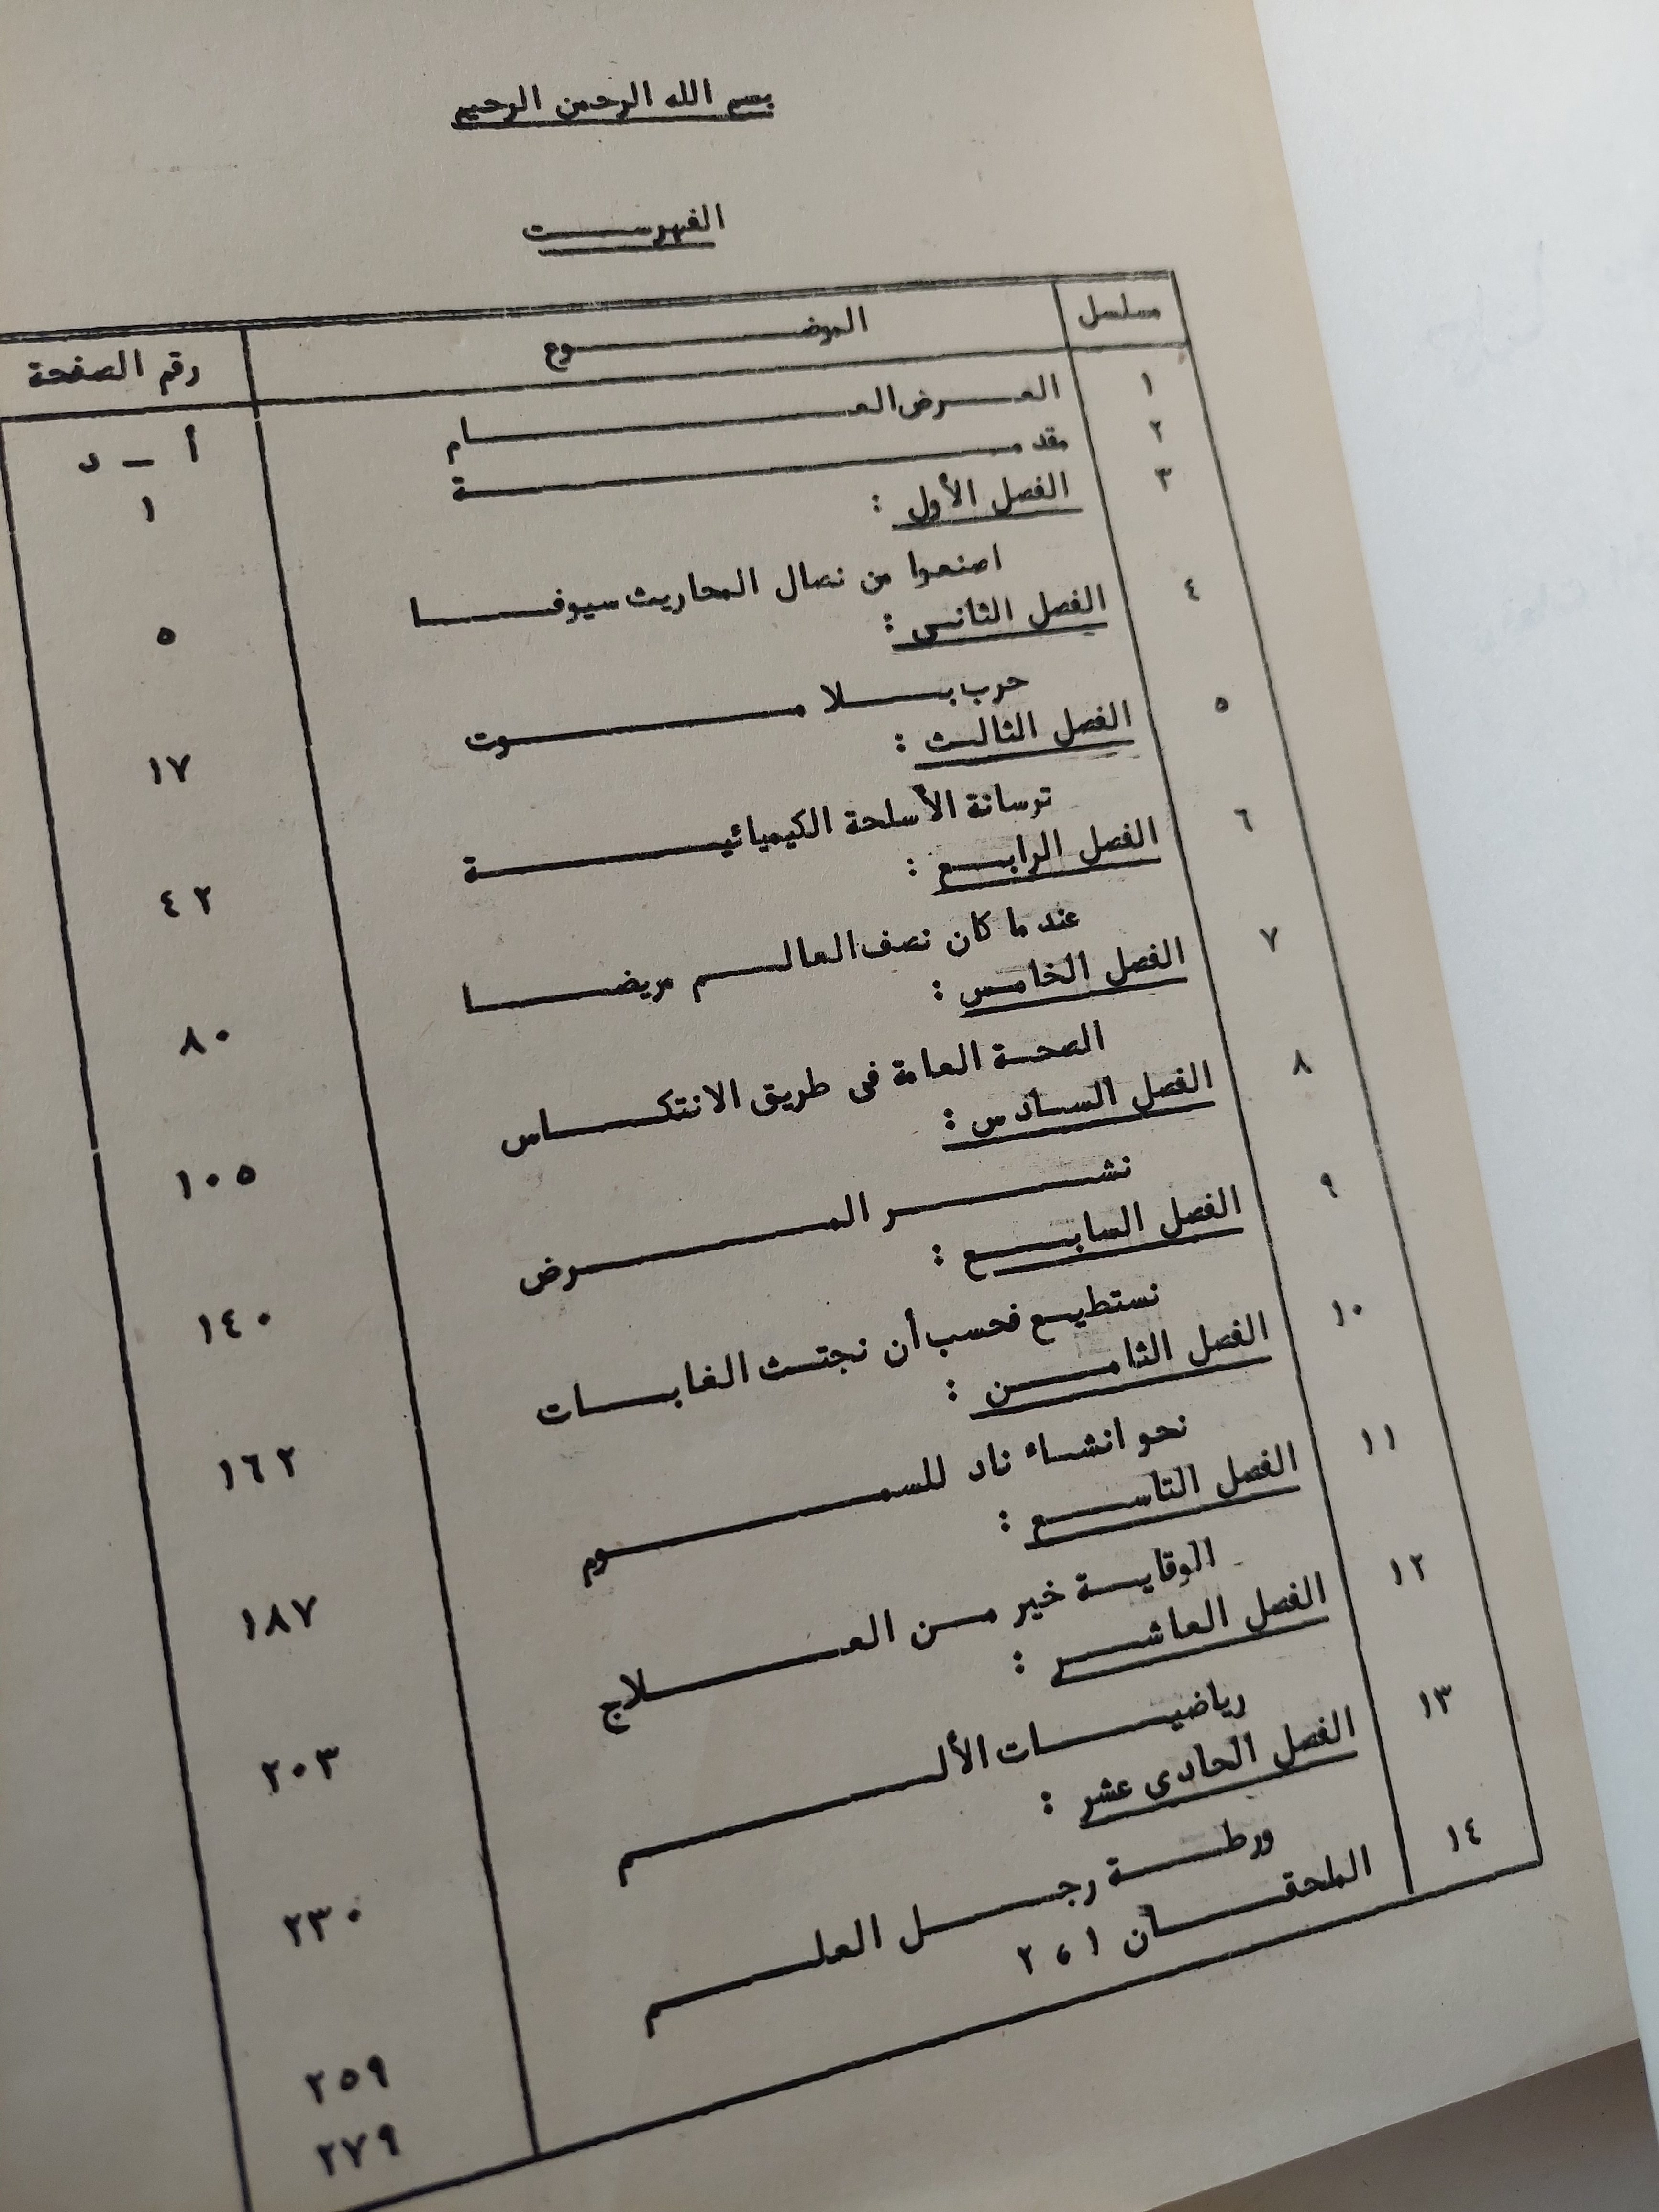 بسم الله الرحمن الرحيم
الفهرست
مسلسل الموضوع رقم الصفحة
١ العرض العام أ - د
٢ مقدمة ١
٣ الفصل الأول :
اصنعوا من نصال المحاريث سيوفا ٥
٤ الفصل الثانى :
حرب بلا موت ١٧
٥ الفصل الثالث :
ترسانة الأسلحة الكيميائية ٤٢
٦ الفصل الرابع :
عندما كان نصف العالم مريضا ٨٠
٧ الفصل الخامس :
الصحة العامة فى طريق الانتكاس ١٠٥
٨ الفصل السادس :
نشر المرض ١٤٠
٩ الفصل السابع :
نستطيع فحسب أن نجتث الغابات ١٦٢
١٠ الفصل الثامن :
نحو انشاء ناد للسموم ١٨٧
١١ الفصل التاسع :
الوقاية خير من العلاج ٢٠٣
١٢ الفصل العاشر :
رياضيات الألم ٢٣٠
١٣ الفصل الحادى عشر :
ورطة رجل العلم ٢٥٩
١٤ الملحقان ١ ، ٢ ٢٧٩